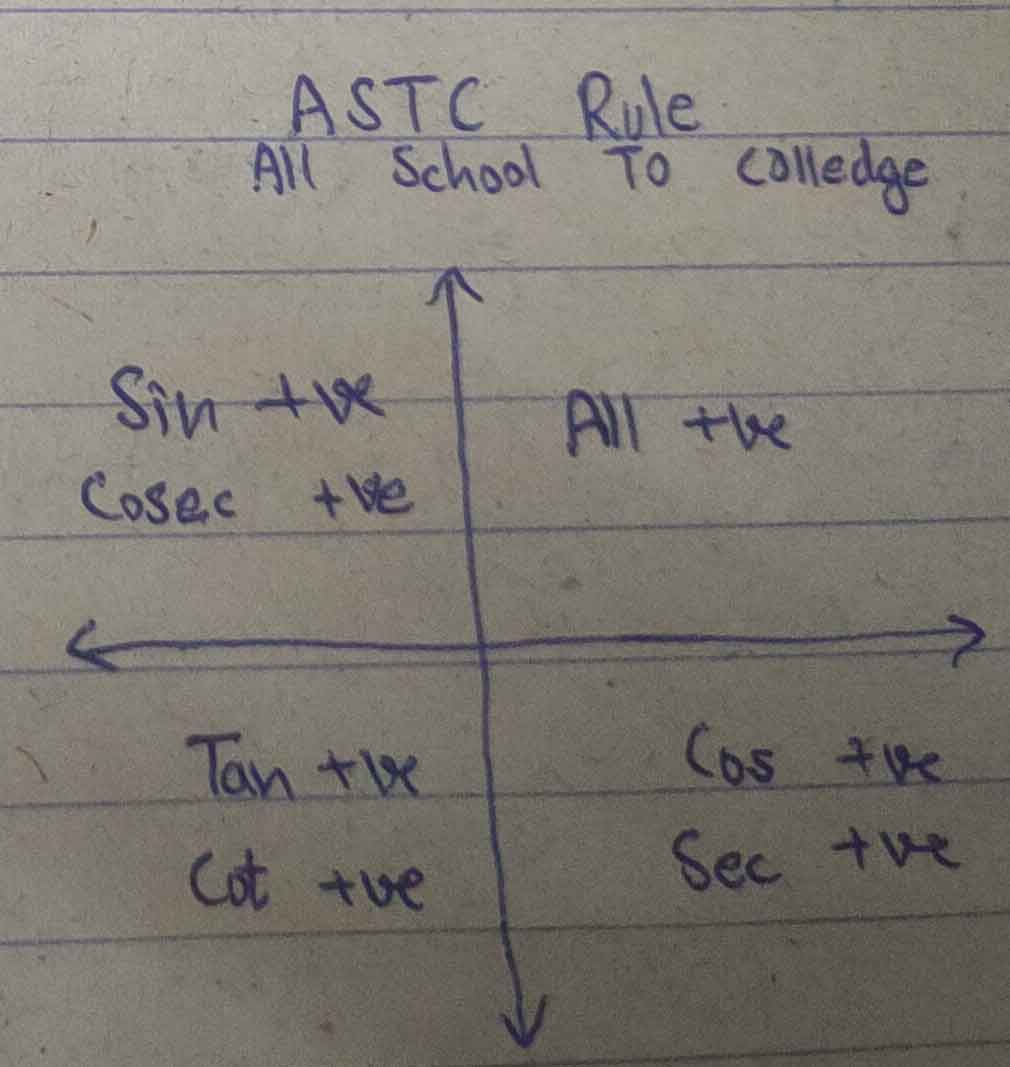 ASTC Rule
All School To Colledge
Sin +ve
Cosec +ve
All +ve
Tan +ve
Cot +ve
Cos +ve
Sec +ve